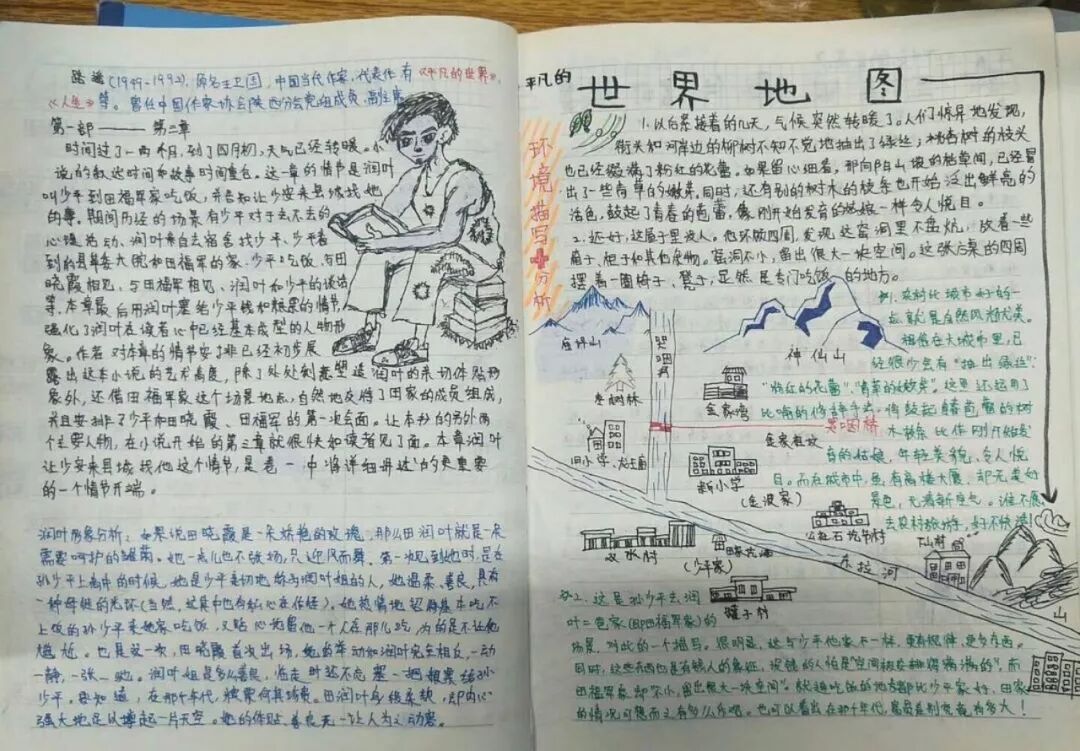 路遥(1949-1992),原名王卫国,中国当代作家,代表作有《平凡的世界》,
《人生》等。曾任中国作家协会陕西分会党组成员、副主席
第一部——第三章
时间过了一两个月,到了四月初,天气已经转暖。小
说的叙述时间和故事时间重合。这一章的情节是润叶
叫少平到田福军家吃饭,并告知让少安来县城找她
的事。期间历经的场景有少平对于去不去的
心理活动、润叶亲自去宿舍找少平、少平看
到的县革委大院和田福军的家、少平吃饭、与田
晓霞相见、与田福军相见、润叶和少平的谈话
等。本章最后用润叶塞给少平钱和粮票的情节,
强化了润叶在读者心中已经基本成型的人物形
象。作者对本章的情节安排已经初步展
露出这本小说的艺术高度,除了处处刻意塑造润叶的亲切体贴形
象外,还借田福军家这个场景地点,自然地交待了田家的成员组成,
并且安排了少平和田晓霞、田福军的第一次会面。让本书的另外两
个主要人物,在小说开始的第三章就很快和读者见了面。本章润叶
让少安来县城找他这个情节,是卷一中"将详细再述"的更重要
的一个情节开端。
润叶形象分析:如果说田晓霞是一朵娇艳的玫瑰,那么田润叶就是一朵
需要呵护的雏菊。她一点儿也不张扬,只迎风而舞。第一次见到她时,是在
孙少平上高中的时候,她是少平亲切地称为润叶姐的人,她温柔、善良,具有
一种母性的光环(当然,这其中也有私心在作怪)。她热情地招待基本吃不
上饭的孙少平来她家吃饭,又贴心地留他一个人在那儿吃,为的是不让他
尴尬。也是这一次,田晓霞首次出场,她的举动和润叶完全相反,一动
一静,一张一弛。润叶姐是多么善良,临走时还不忘塞一把粮票给孙
少平,要知道,在那个年代,粮票何其珍贵。田润叶身段柔软,却内心
强大地足以撑起一片天空。她的体贴、善良无一让人为之动容。
平凡的
世界地图
环境描写+分析
1.以后紧接着的几天,气候突然转暖了。人们惊异地发现,
街头和河岸边的柳树不知不觉地抽出了绿丝;桃杏树的枝头
也已经缀满了粉红的花蕾。如果留心细看,那向阳山坡的枯草间,已经冒
出了一些青草的嫩芽。同时,还有别的树木的枝条也开始泛出鲜亮的
活色,鼓起了青春的苞蕾,像刚开始发育的姑娘一样令人悦目。
2.还好,这屋子里没人。他环顾四周,发现这窑洞里不盘炕,放着一些
箱子、柜子和其他杂物。窑洞不小,留出很大一块空间。这张方桌的四周
摆着一圈椅子、凳子,显然是专门吃饭的地方。
析1.农村比城市好的一
点就是自然风景优美。
相信在大城市里,已
经很少会有"抽出绿丝"
"粉红的花蕾""青草的嫩芽"。这里还运用了
比喻的修辞手法,将鼓起青春苞蕾的树
木枝条比作刚开始发
育的姑娘,年轻美貌、令人悦
目。而在城市中,虽有高楼大厦,却无美好
景色,无清新空气。谁不愿
去农村旅游,好不快活!
庙坪山
哭咽河
神仙山
枣树林
金家湾
哭咽桥
金家祖坟
旧小学、龙王庙
新小学
(金波家)
公社石圪节村
双水村
(少平家)
田家圪崂
东拉河
罐子村
山
析2.这是孙少平去润
叶二爸家(即田福军家)的
场景,对此的一个描写。很明显,这与少平他家不一样,更有规律,更多东西。
同时,这些东西也是有钱人的象征,没钱的人怕是"空间被各种